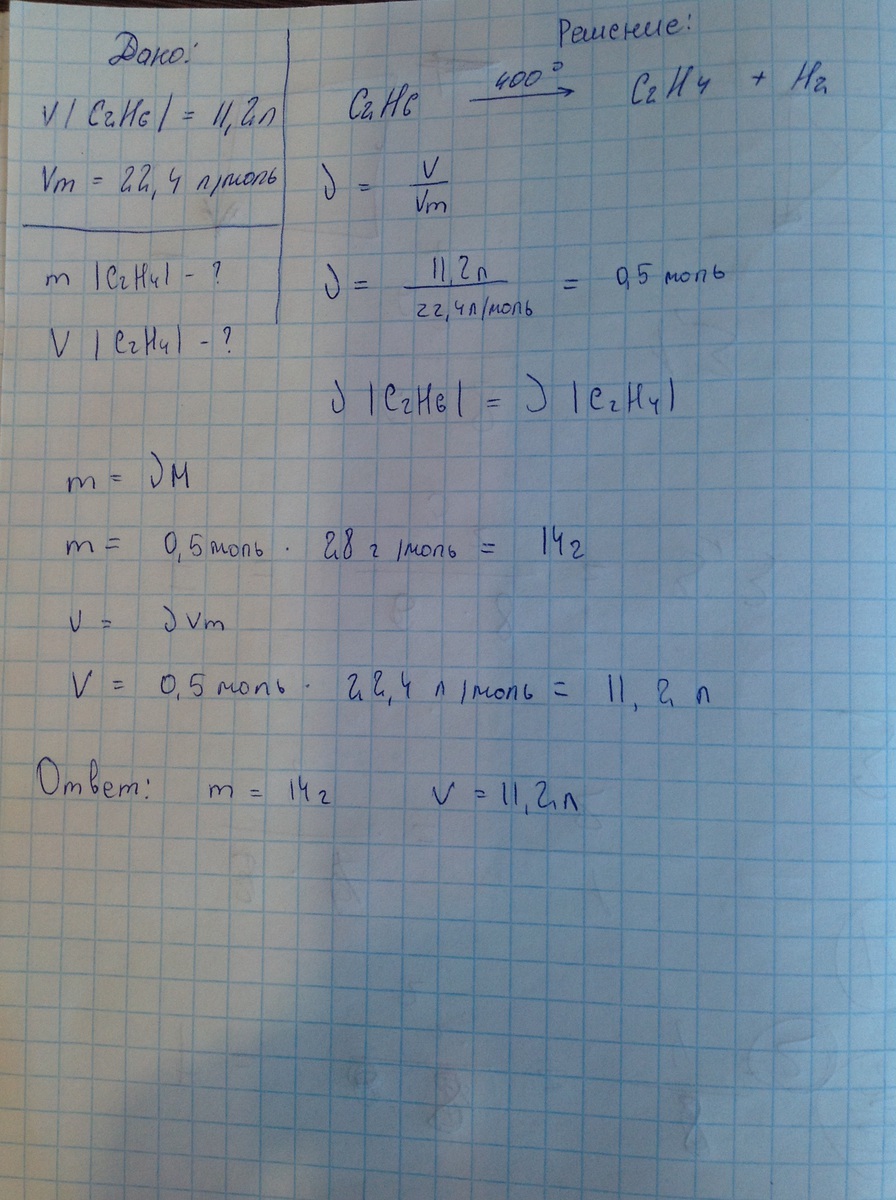 Дано:
V |C₂H₆| = 11,2л
Vm = 22,4 л/моль
m |C₂H₄| - ?
V |C₂H₄| - ?
Решение:
C₂H₆ 400° → C₂H₄ + H₂
ν = V / Vm
ν = 11,2л / 22,4л/моль = 0,5 моль
ν |C₂H₆| = ν |C₂H₄|
m = νM
m = 0,5 моль · 28 г/моль = 14г
V = νVm
V = 0,5 моль · 22,4 л/моль = 11,2 л
Ответ: m = 14г V = 11,2л